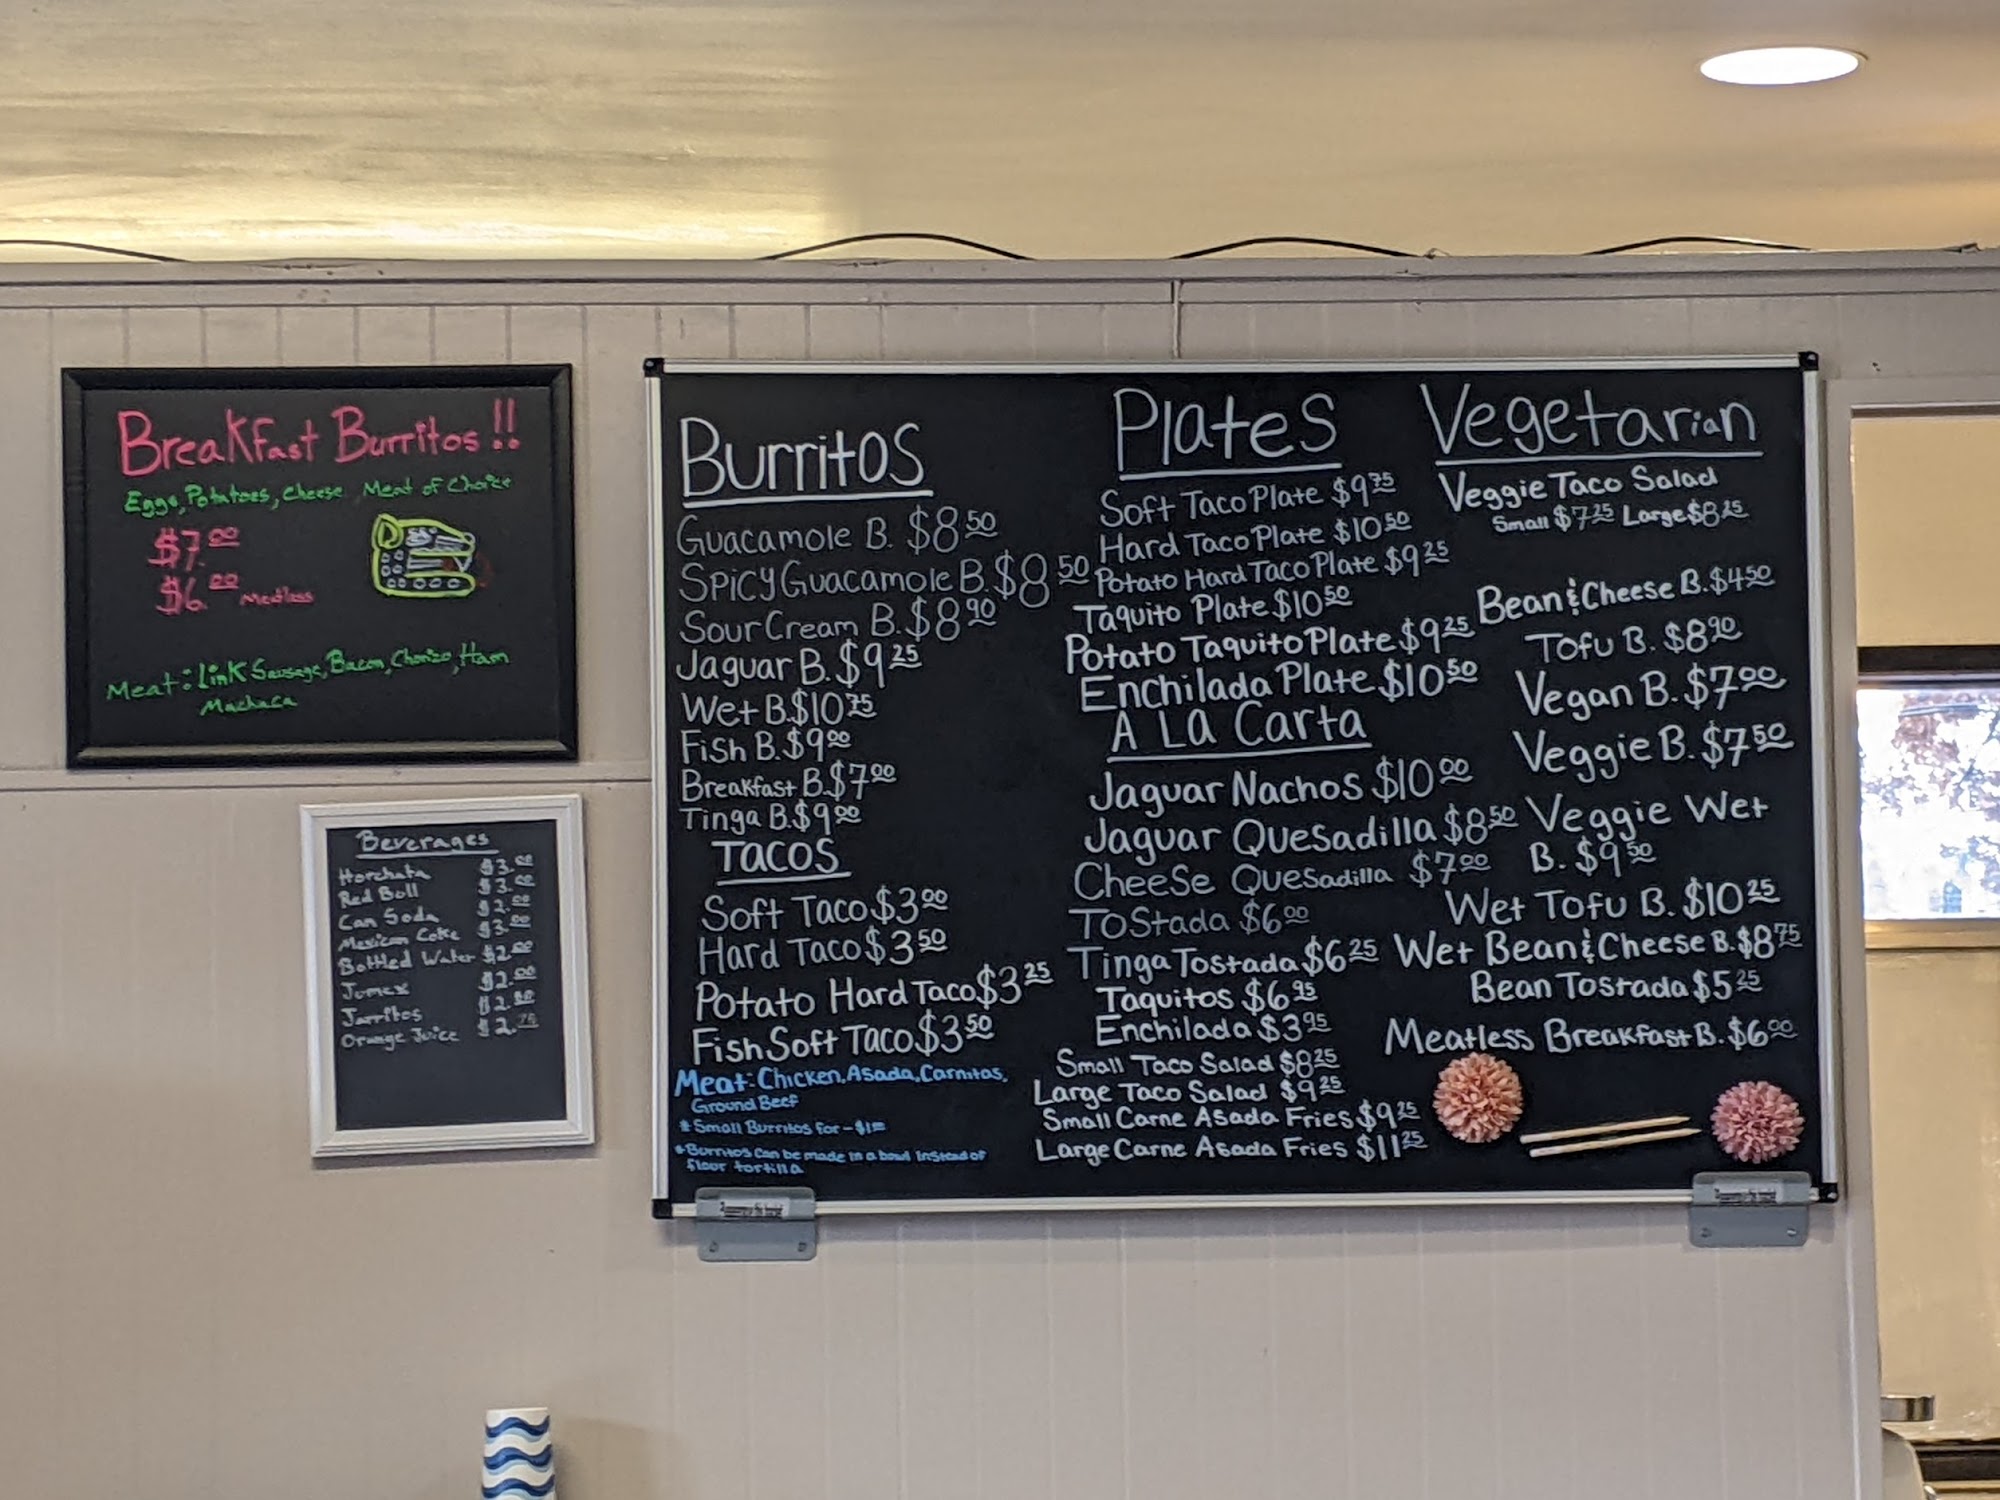 Breakfast Burritos!!
Eggs, Potatoes, Cheese, Meat of Choice
$7.00
$6.00 Meatless
Meat: Link Sausage, Bacon, Chorizo, Ham
Machaca
Beverages
Horchata $3.00
Red Boll $3.00
Can Soda $2.00
Mexican Coke $3.00
Bottled Water $2.00
Jumex $2.00
Jarritos $2.00
Orange Juice $2.75
Burritos
Guacamole B. $8 50
Spicy Guacamole B. $8 50
Sour Cream B. $8 90
Jaguar B. $9 25
Wet B. $10 75
Fish B. $9 00
Breakfast B. $7 00
Tinga B. $9 00
Tacos
Soft Taco $3 00
Hard Taco $3 50
Potato Hard Taco $3 25
Fish Soft Taco $3 50
Meat: Chicken, Asada, Carnitas,
Ground Beef
* Small Burritos for - $1 00
* Burritos can be made in a bowl instead of
flour tortilla
Plates
Soft Taco Plate $9 75
Hard Taco Plate $10 50
Potato Hard Taco Plate $9 25
Taquito Plate $10 50
Potato Taquito Plate $9 25
Enchilada Plate $10 50
A La Carta
Jaguar Nachos $10 00
Jaguar Quesadilla $8 50
Cheese Quesadilla $7 00
Tostada $6 00
Tinga Tostada $6 25
Taquitos $6 95
Enchilada $3 95
Small Taco Salad $8 25
Large Taco Salad $9 25
Small Carne Asada Fries $9 25
Large Carne Asada Fries $11 25
Vegetarian
Veggie Taco Salad
Small $7 25 Large $8 25
Bean & Cheese B. $4 50
Tofu B. $8 90
Vegan B. $7 00
Veggie B. $7 50
Veggie Wet
B. $9 50
Wet Tofu B. $10 25
Wet Bean & Cheese B. $8 75
Bean Tostada $5 25
Meatless Breakfast B. $6 00